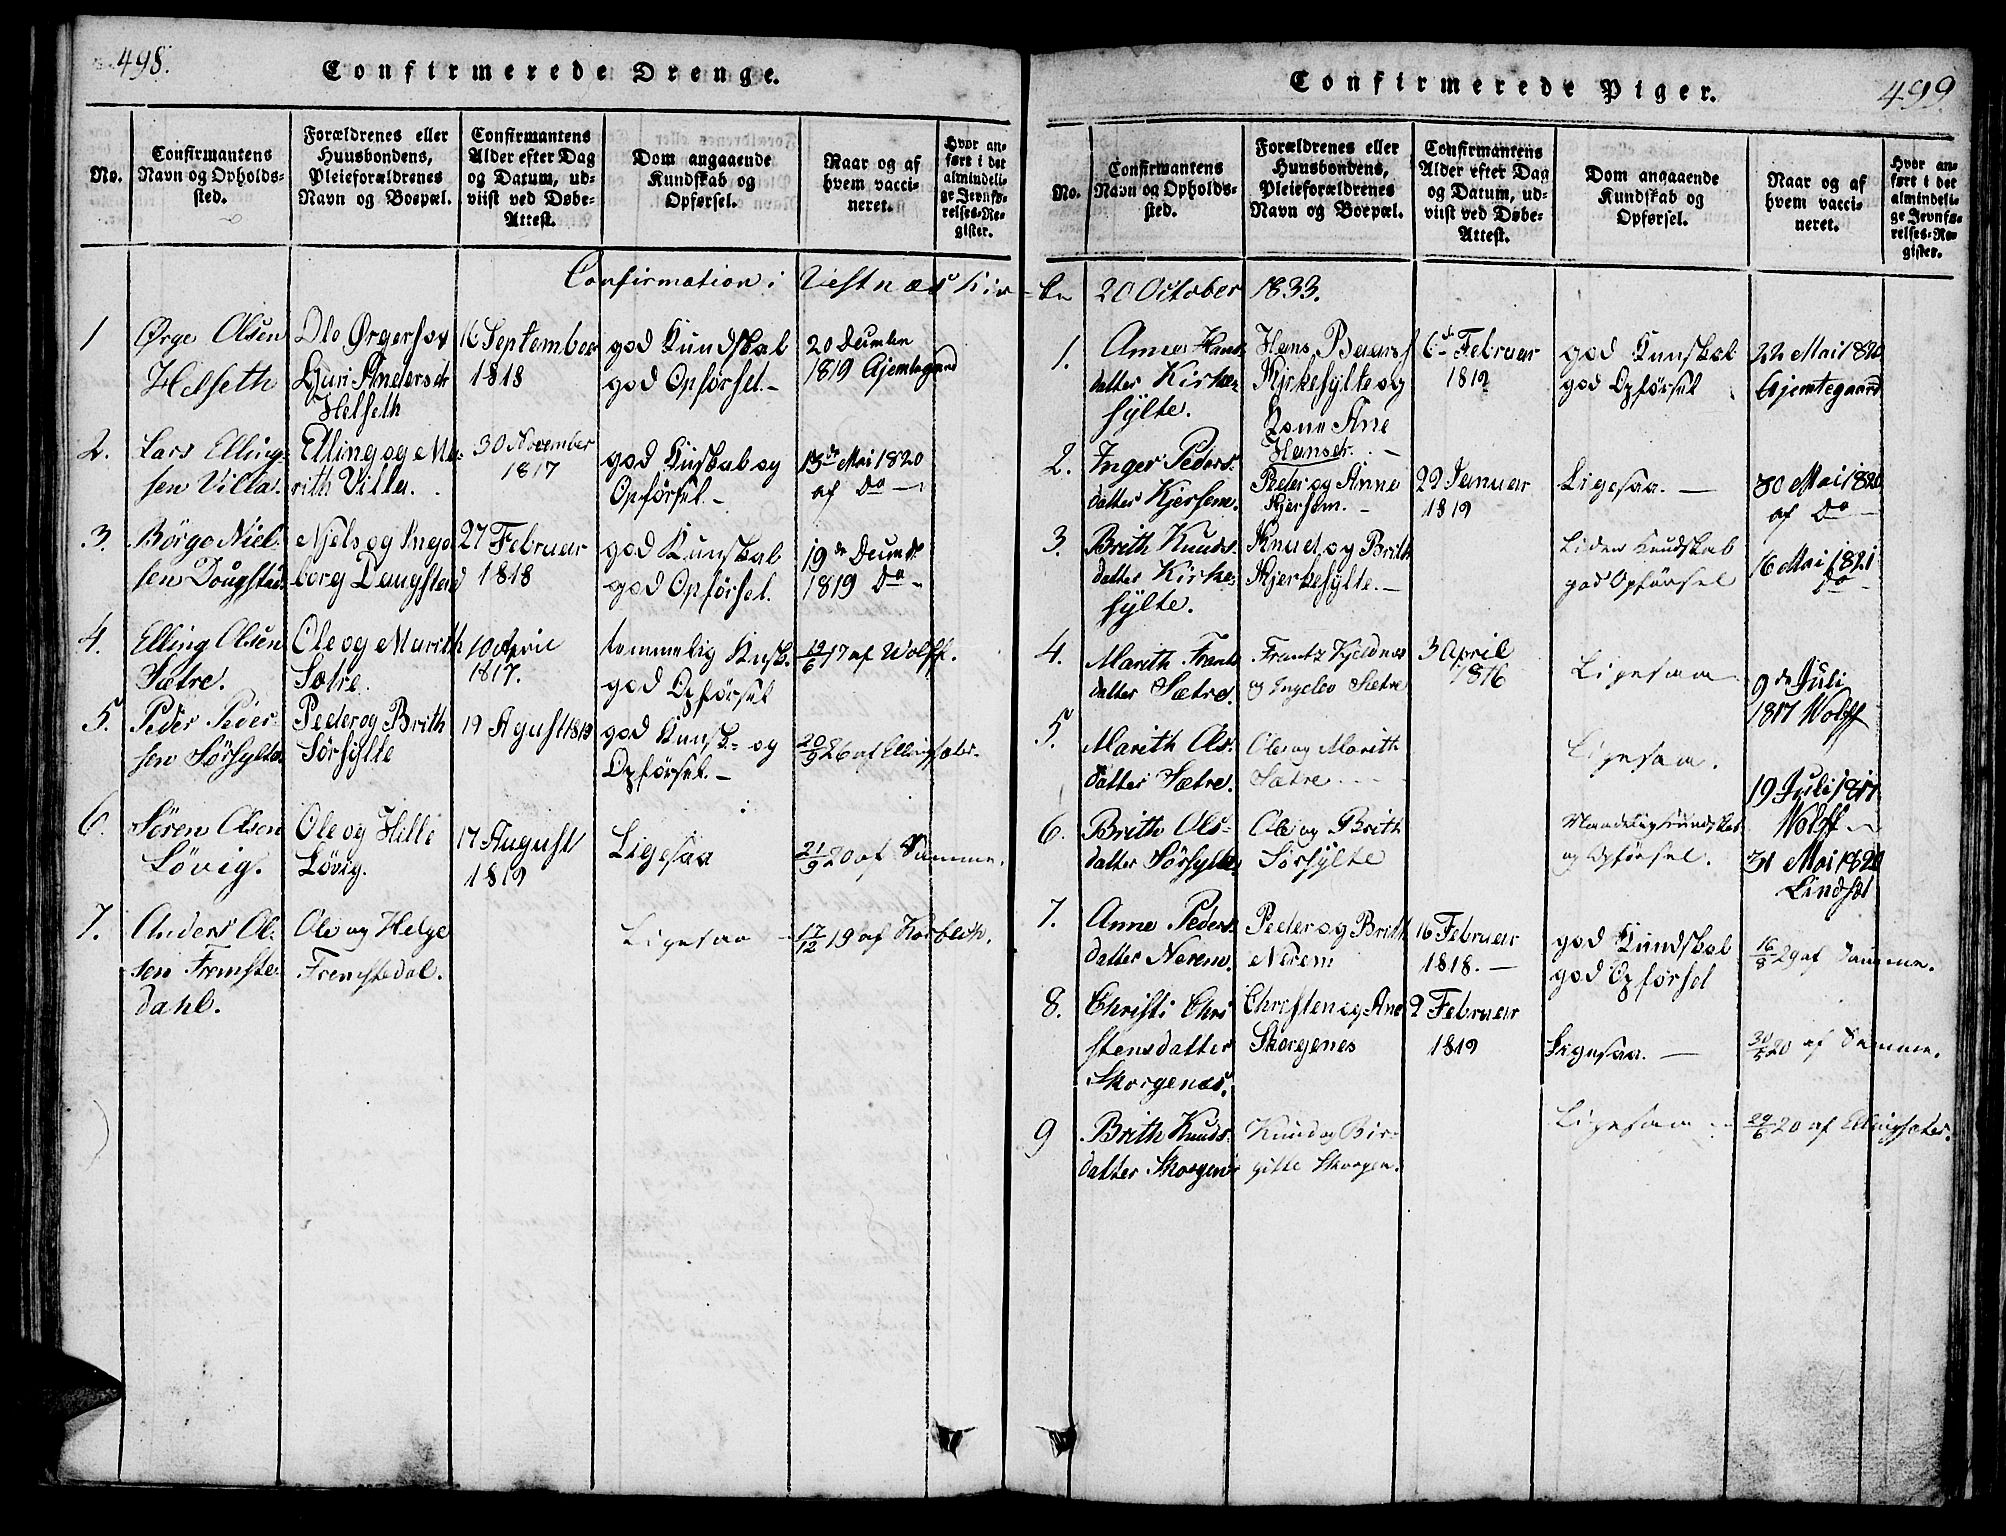 498.
Confirmerede Drenge.
No.
Confirmantens
Navn og Opholds-
sted.
Forældrenes eller
Huusbondens,
Pleieforældrenes
Navn og Boepæl.
Confirmantens
Alder efter Dag
og Datum, ud-
viist ved Døbe-
Attest.
Dom angaaende
Kundskab og
Opførsel.
Naar og af
hvem vacci-
neret.
Hvor an-
ført i det
almindeli-
ge Jevnfø-
relses-Re-
gister.
Confirmation i Vestnæs Kir-
1
Ørge Olsen
Helseth
Ole Ørgersøn
Guri Andersdr
Helseth
16 September
1818
god Kundskab
god Opførsel.-
20 Decembr
1819 Gjemtegaard
2.
Lars Elling-
sen Villa.
Elling og Ma-
rith Villa.
30 November
1817
god Kuskab og
Opførsel.-
13de Mai 1820
af Do -
3.
Börge Niel-
sen Dougstad
Njels og Inge
borg Daugstad
27 Februar
1818
god Kunskab
god Opførsel.
19de Decembr
1819 Do -
4.
Elling Olsen
Sætre.
Ole og Marith
Sætre.
10 April
1817.
temmelig Kusk.
god Opførsel
19/6 17 af Wolff.
5.
Peder Peder-
sen Sørsylte
Peder og Brith
Sørsylte
19 Agust 1818
god Kunsk- og
Opførsel.-
20/9 26 af Ellingsæter.
6.
Søren Olsen
Løvig.
Ole og Helle
Løvig.
17 August
1819
Ligesaa
21/9 20 af Samme.
7.
Anders Ol-
sen Fremste-
dahl.
Ole og Helge
Fremstedal.
Ligesaa -
17/12 19 af Korbech.
499
Confirmerede Piger.
No.
Confirmantens
Navn og Opholds-
sted.
Forældrenes eller
Huusbondens,
Pleieforældrenes
Navn og Boepæl.
Confirmantens
Alder efter Dag
og Datum, ud-
viist ved Døbe-
Attest.
Dom angaaende
Kundskab og
Opførsel.
Naar og af
hvem vacci-
neret.
Hvor an-
ført i det
almindeli-
ge Jevnfø-
relses-Re-
gister.
ke 20 October 1833.
1.
Anne Hans
datter Kirke-
sylte.
Hans
Kjrkesylte og
Kone Ane
Hansdr. -
6de Februar
1819
god Kunskab
god Opførsel
22 Mai 1820
Gjemtegaard
2.
Inger Peders-
datter Kjersem.
Peder og Anne
Kjersem. -
22 Januar
1819
Ligesaa. -
30 Mai 1820
af Do -
3.
Brith Knuds
datter Kirke-
sylte.
Knud og Brith
Kjerkesylte. -
Liden Kundskab
god Opførsel
16 Mai 1821
Do -
4.
Marith Frants
datter Sætre.
Frantz Kjeldsen
og Ingelev Sætre
3 April
1816
Ligesaa
9de Juli
1817 Wolff
5.
Marith Ols-
datter Sætre.
Ole og Marith
Sætre -
Ligesaa.
19 Juli 1817
Wolff -
6.
Brith Ols-
datter Sørsylte
Ole og Brith
Sørsylte
Maadelig Kundskab
og Opførsel.
31 Mai 1820
Lindset
7.
Anne Peders-
datter Nerem.
Peder og Brith
Nerem
16 Februar
1818. -
god Kundskab
god Opførsel
16/8 29 af Samme.
8.
Christi Chri
stensdatter
Skorgenes.
Christen og Ane
Skorgenes
2 Februar
1819
Ligesaa. -
30/5 20 af Samme.
9
Brith Knuds-
datter Skorgen
Knud og Bir-
gitte Skorgen.
Ligesaa -
29/6 20 af Ellingsæter.